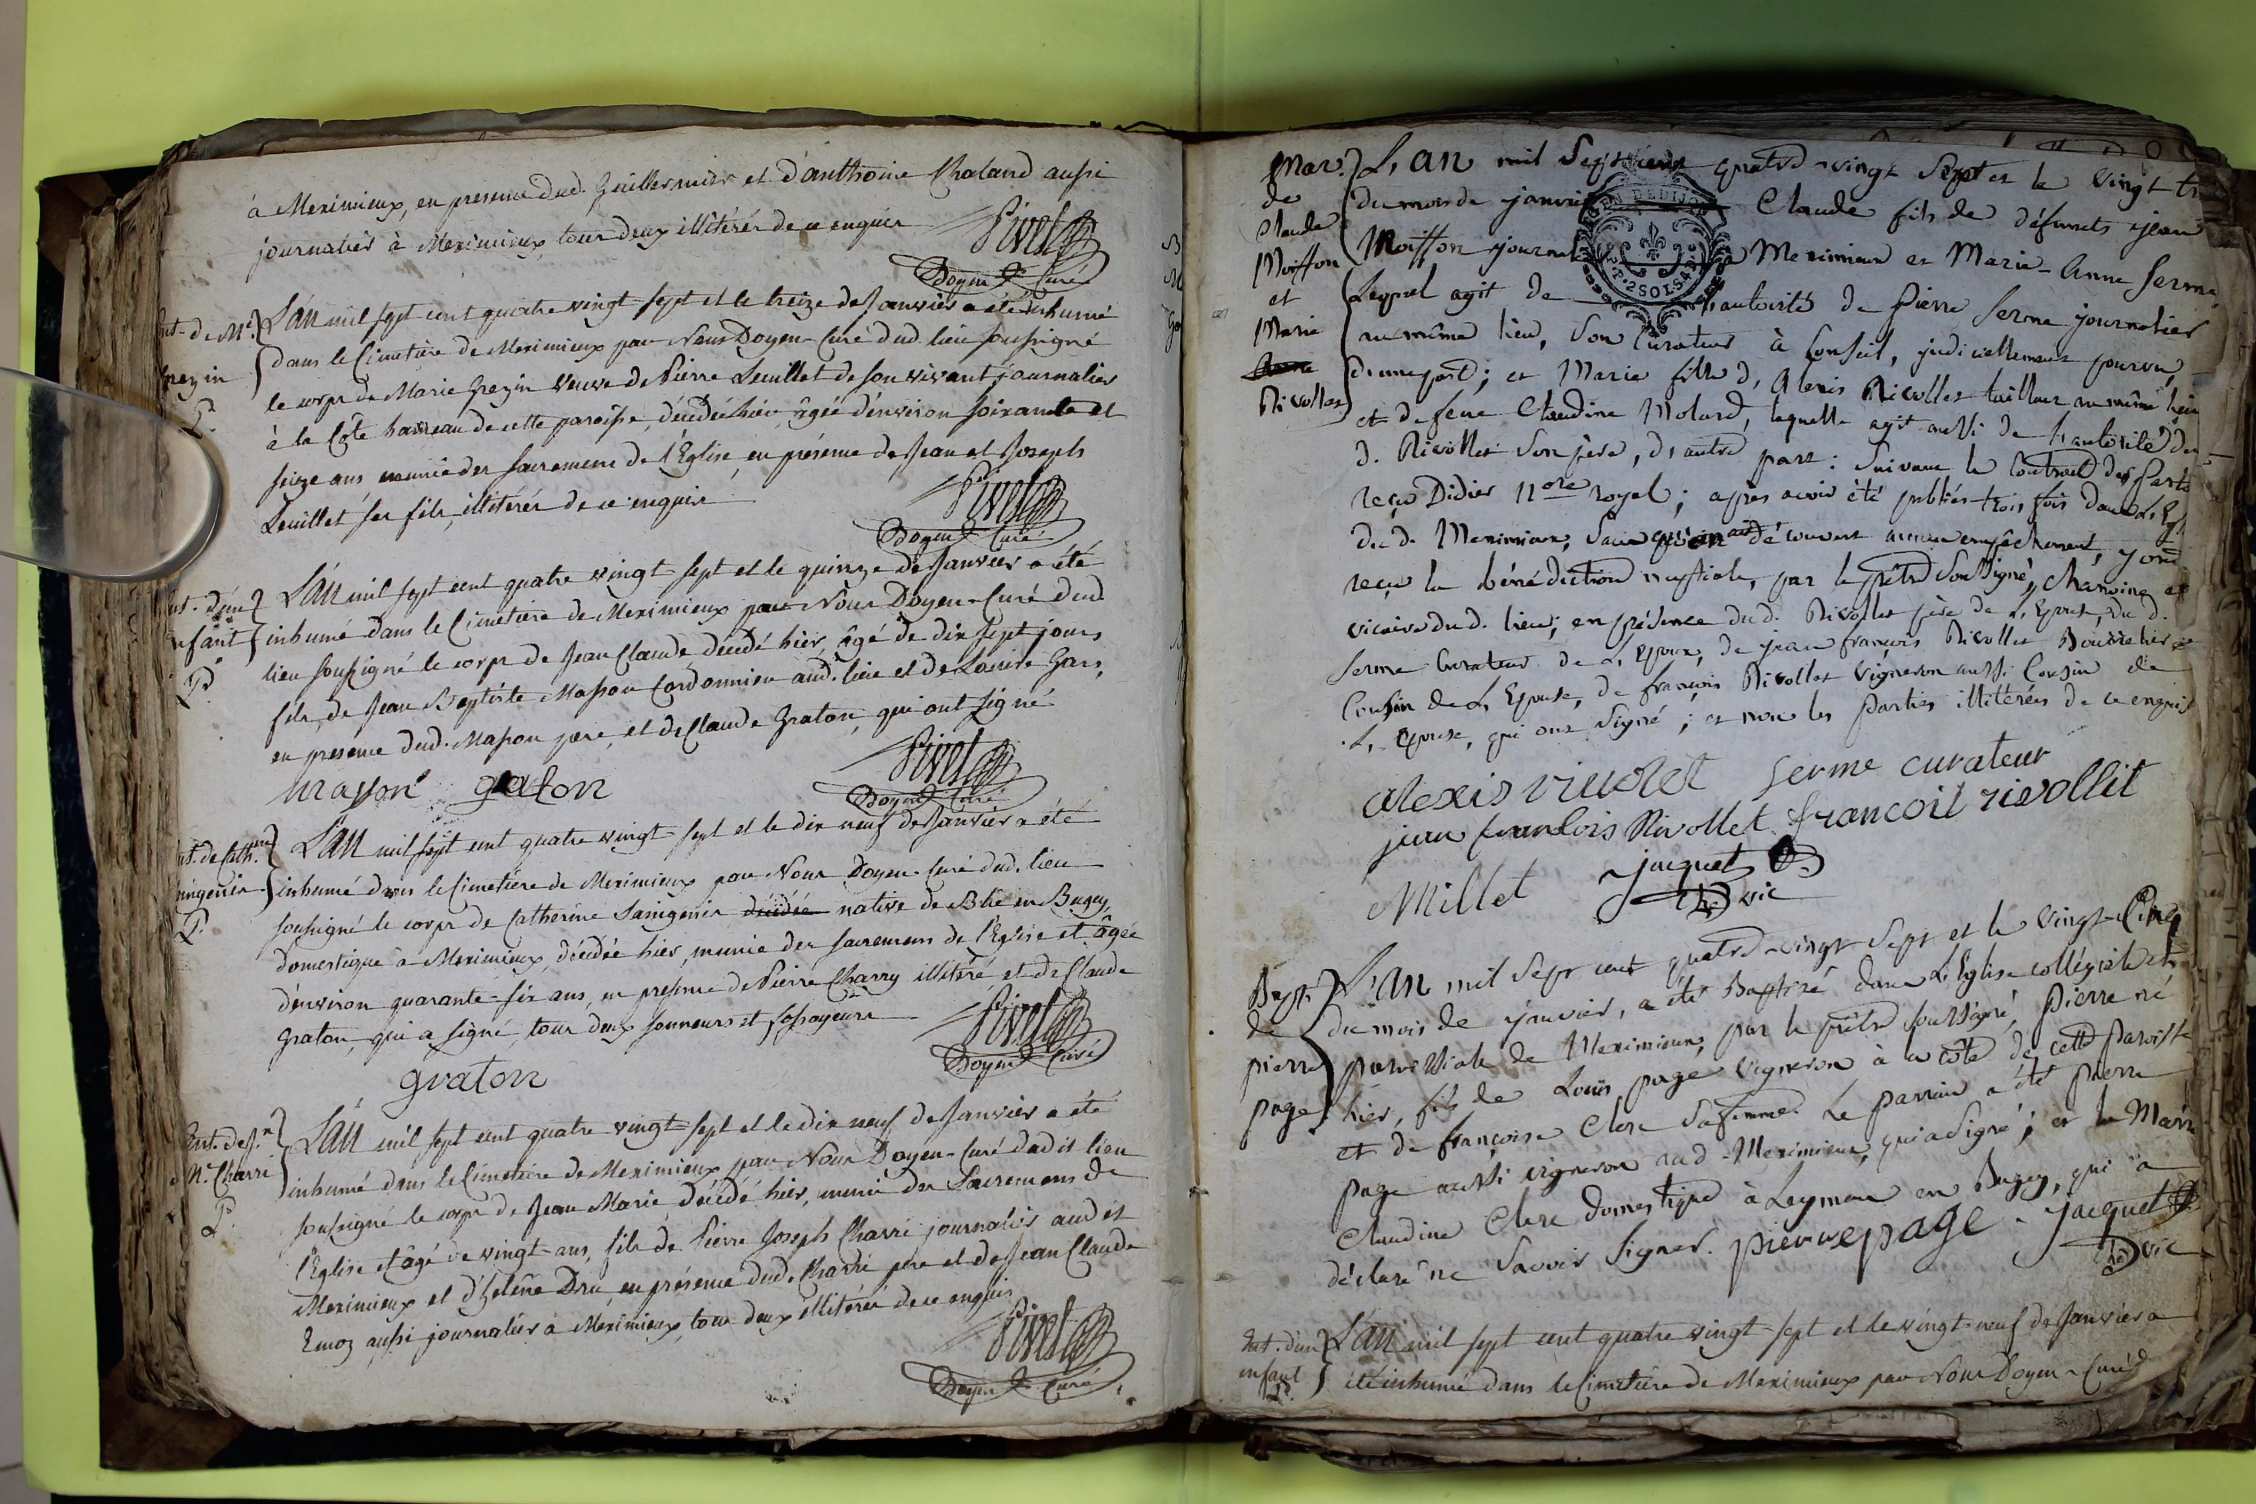 à Meximieux, en presence dud. Guillermier et d'anthoine Chaland aussi
journalier à Meximieux, tous deux illitérés de ce enquis
Pivet
Doyen & Curé
Ent. de Me
Grezin
L'an mil sept cent quatre vingt-sept et le treize de Janvier a été inhumé
dans le Cimetière de Meximieux par Nous Doyen-Curé dud. lieu soussigné
le corps de Marie Grezin veuve de Pierre Leuillet de son vivant journalier
à la Côte hameau de cette paroisse, décédée hier, âgée d'environ soixante et
seize ans munie des sacremens de l'Eglise, en présence de Jean et Joseph
Leuillet ses fils, illitérés de ce enquis
Pivet
Doyen & Curé
Ent. d'un
enfant
L'an mil sept cent quatre vingt-sept et le quinze de Janvier a été
inhumé dans le Cimetière de Meximieux par Nous Doyen-Curé dud.
lieu soussigné le corps de Jean Claude décédé hier, âgé de dix sept jours,
fils, de Jean Baptiste Masson Cordonnier aud. lieu et de Louise Gars,
en presence dud. Masson père, et de Claude Graton, qui ont signé
masson graton
Pivet
Doyen & Curé
L'an mil sept cent quatre vingt-sept et le dix neuf de Janvier a été
inhumé dans le Cimetière de Meximieux par Nous Doyen-Curé dud. lieu
soussigné le corps de Catherine décédée native de en Bugey,
domestique à Meximieux, décédée hier, munie des sacremens de l'Eglise et âgée
d'environ quarante-six ans, en présence de Pierre Charry illitéré, et de Claude
Graton, qui a signé, tous deux sonneurs et fossoyeurs
graton
Pivet
Doyen & Curé
Ent. de Jn
Me Charri
L'an mil sept cent quatre vingt-sept et le dix neuf de Janvier a été
inhumé dans le Cimetière de Meximieux par Nous Doyen-Curé dudit lieu
soussigné le corps de Jean Marie, décédé hier, muni des Sacremens de
l'Eglise et âgé de vingt-ans, fils de Pierre Joseph Charri journalier audit
Meximieux et d'helène Dru, en présence dud. Charri père et de Jean Claude
aussi journalier à Meximieux, tous deux illitérés de ce enquis
Pivet
Doyen & Curé
Mar.
de
Claude
Moiffon
et
Marie
Anne
Rivollet
L'an mil Sept cent quatre-vingt Sept et le vingt
du mois de janvier Claude fils de défunts jean
Moiffon journalier à Meximieux et Marie-Anne Serme
Lequel agit de l'autorité de Pierre Serme journalier
au même lieu, Son Curateur à Conseil, judiciellement pourvu,
d'une part; et Marie fille d'Alexis Rivollet tailleur au même lieu
et de feue Claudine Molard, laquelle agit aussi de l'autorité du
d. Rivollet Son père, d'autre part: Suivant le Contract
reçu Didier nore royal; après avoir été publiés trois fois dans
du d. Meximieux, Sans qu'on ait découvert aucun empêchement,
reçu la bénédiction nuptiale, par le prêtre Soussigné, Chanoine et
vicaire du d. lieu; en présence du d. Rivollet père de L'Epouse, du d.
Serme Curateur de L'Epoux, de jean françois Rivollet
Cousin de L'Epouse, de françois Rivollet Vigneron aussi Cousin de
L'Epouse, qui ont Signé; et non les parties illitérées de ce enquis
alexis rivolet Serme curateur
jean francois Rivollet francoit rivollit
Millet jaquet
vic
Bapt.
de
pierre
page
L'an mil Sept cent quatre-vingt Sept et le vingt-Cinq
du mois de janvier, a été Baptisé dans L'Eglise collégiale et
paroissiale de Meximieux, par le prêtre Soussigné, Pierre né
hier, fils de Louis page vigneron à la côte de cette Paroisse
et de françoise Clerc Sa femme. Le parrain a été pierre
page aussi vigneron aud. Meximieux, qui a Signé; et la Marraine
Claudine Clerc domestique à Leyment en Bugey, qui a
déclaré ne Savoir Signer. pierre page jacquet
vic
Ent. d'un
enfant
L'an mil sept cent quatre vingt-sept et le vingt-neuf de Janvier a
été inhumé dans le Cimetière de Meximieux par Nous Doyen-Curé